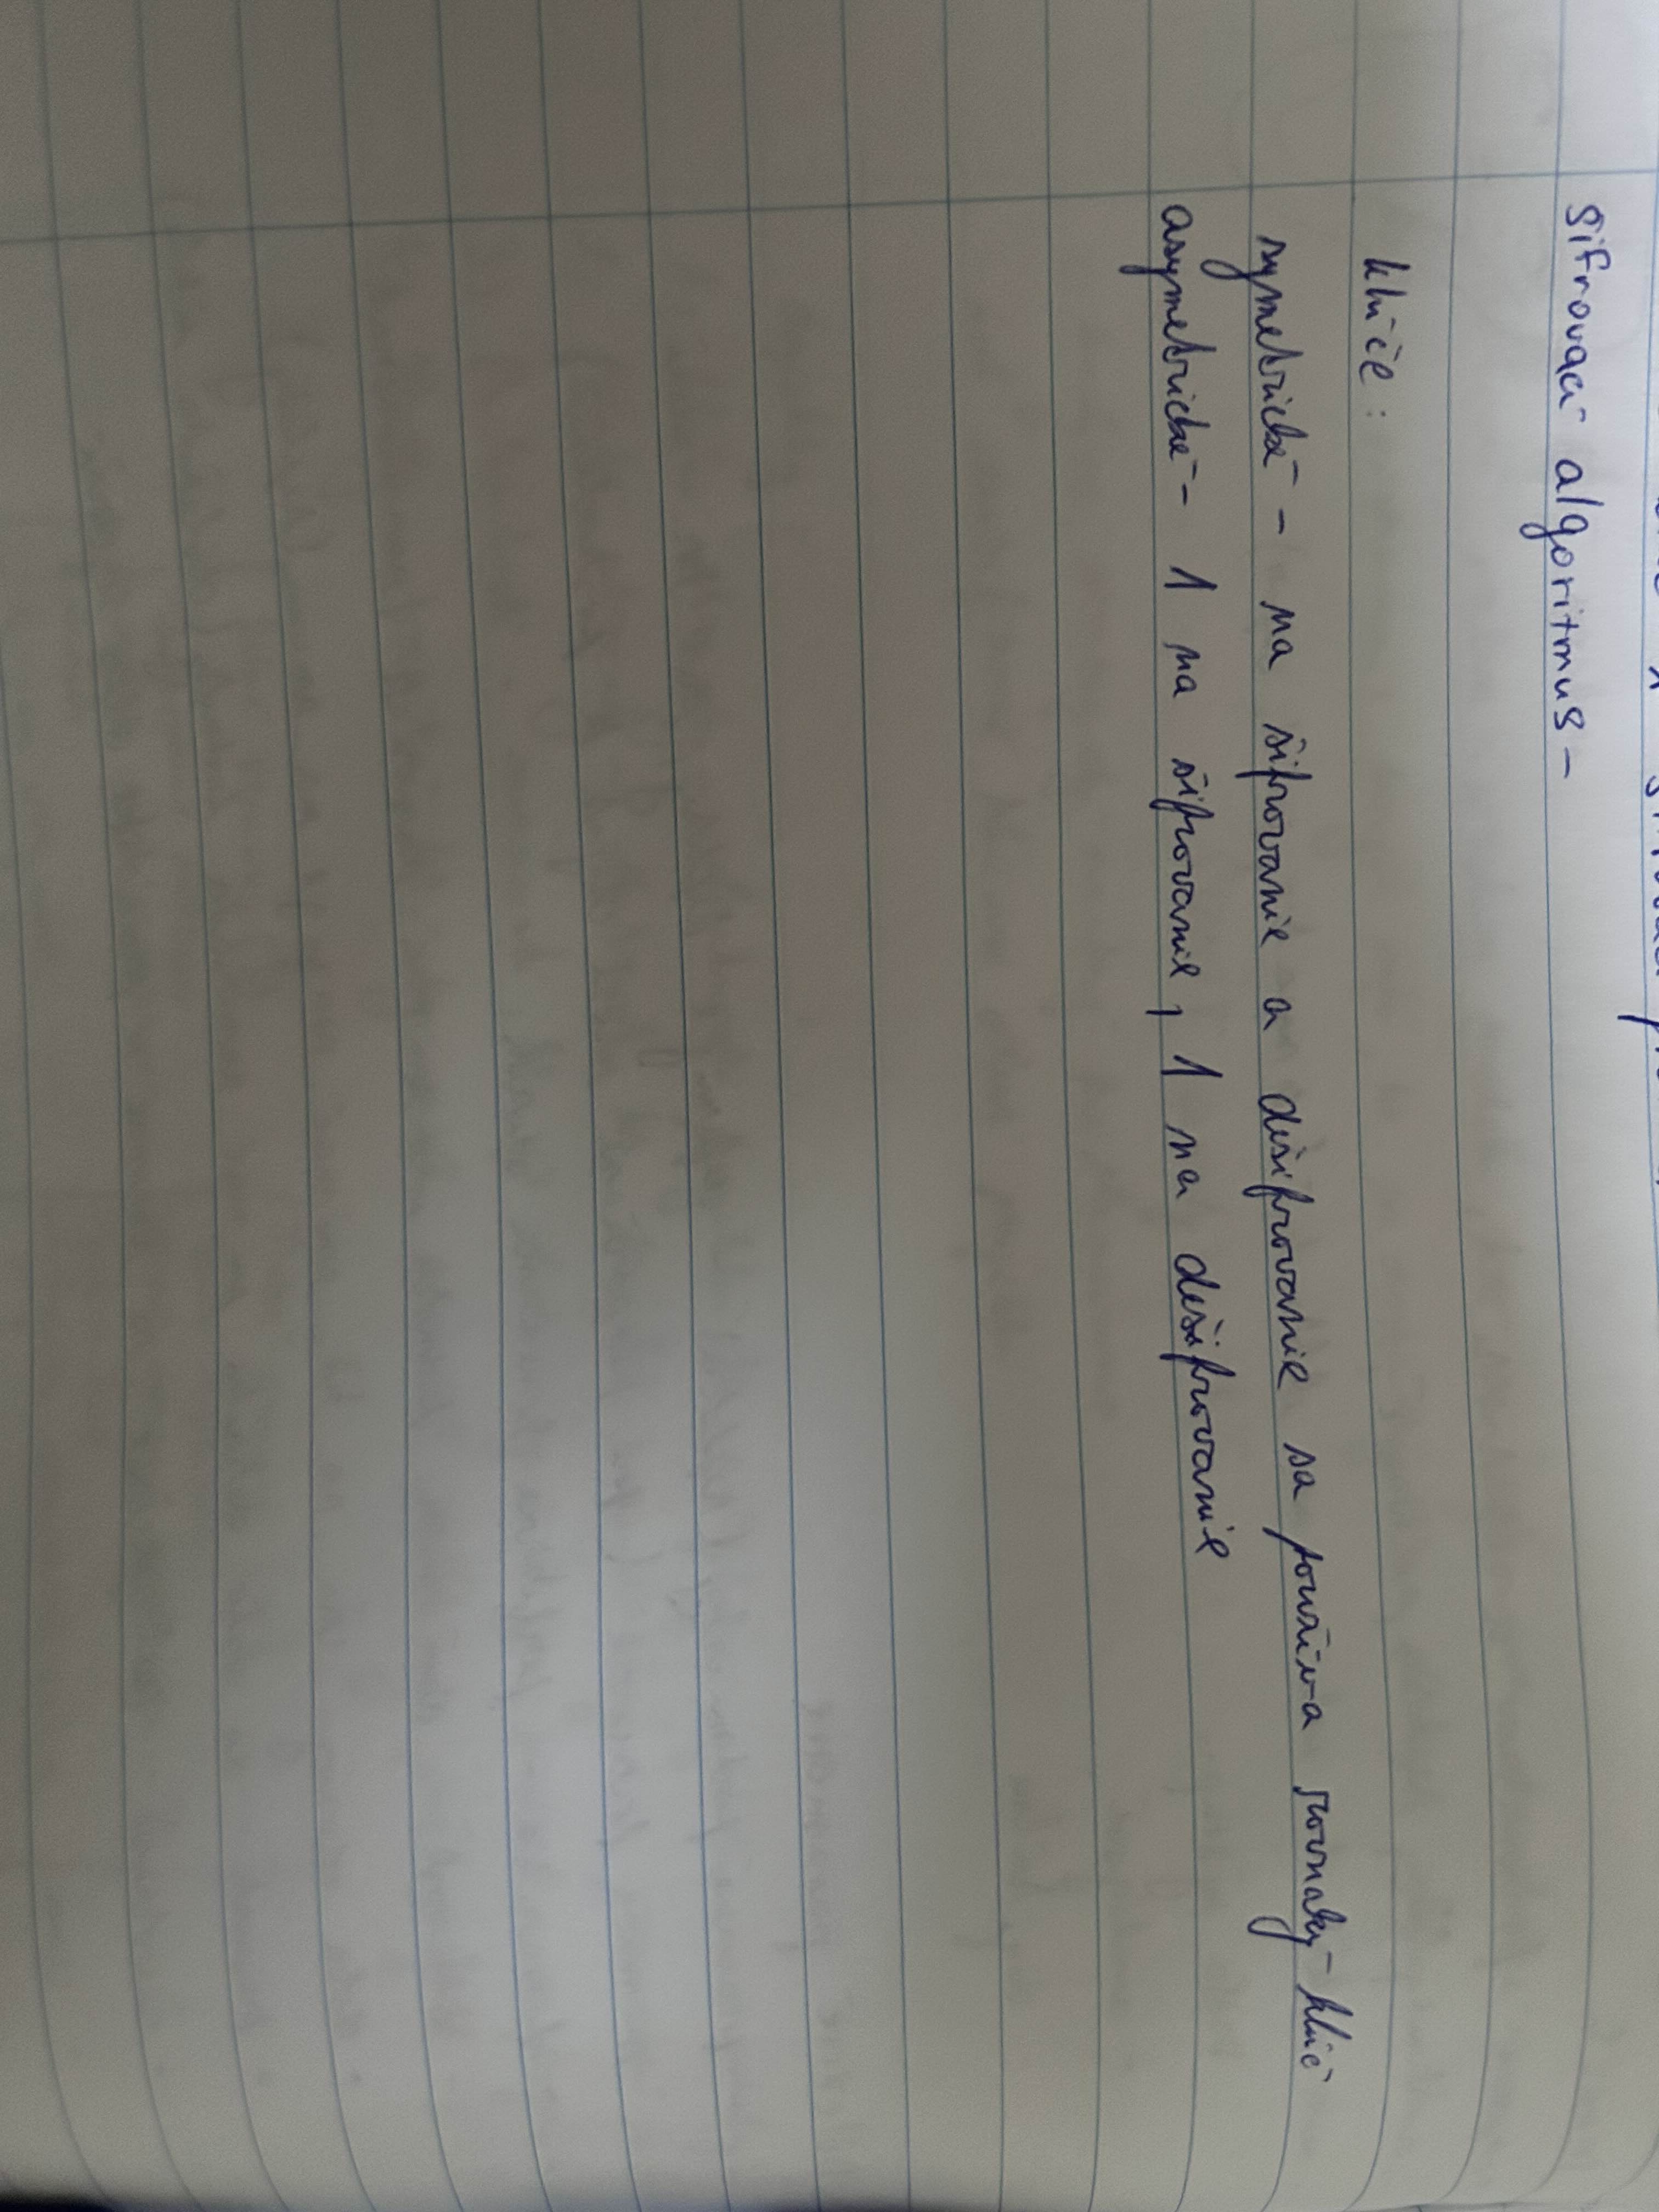 šifrovací algoritmus -
kľúče:
symetrické - na šifrovanie a dešifrovanie sa používa rovnaký kľúč
asymetrické - 1 na šifrovanie, 1 na dešifrovanie